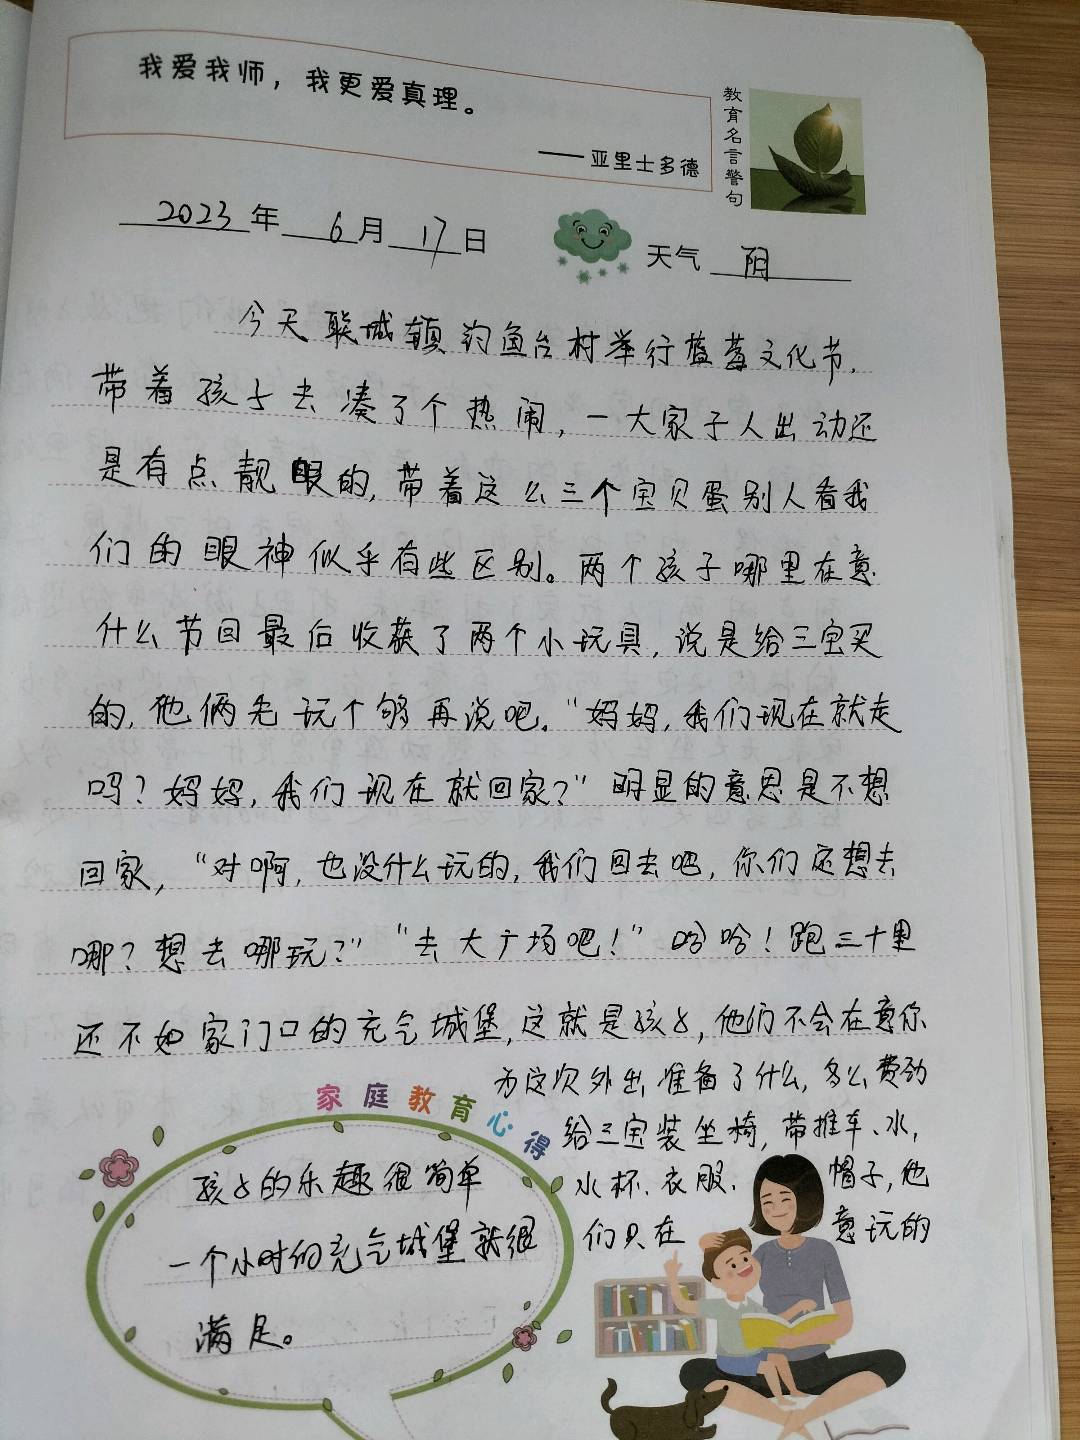 我爱我师，我更爱真理。
——亚里士多德
教育名言警句
2023年6月17日
天气 阴
今天联城镇钓鱼台村举行蓝莓文化节，
带着孩子去凑了个热闹，一大家子人出动还
是有点靓眼的，带着这么三个宝贝蛋别人看我
们的眼神似乎有些区别。两个孩子哪里在意
什么节日最后收获了两个小玩具，说是给三宝买
的，他俩先玩个够再说吧。“妈妈，我们现在就走
吗？妈妈，我们现在就回家？”明显的意思是不想
回家，“对啊，也没什么玩的，我们回去吧，你们还想去
哪？想去哪玩？”“去大广场吧！”哈哈！跑三十里
还不如家门口的充气城堡，这就是孩子，他们不会在意你
为这次外出准备了什么，多么费劲
给三宝装坐椅，带推车、水，
水杯、衣服、帽子，他
们只在意玩的
家庭教育心得
孩子的乐趣很简单
一个小时的充气城堡就很
满足。